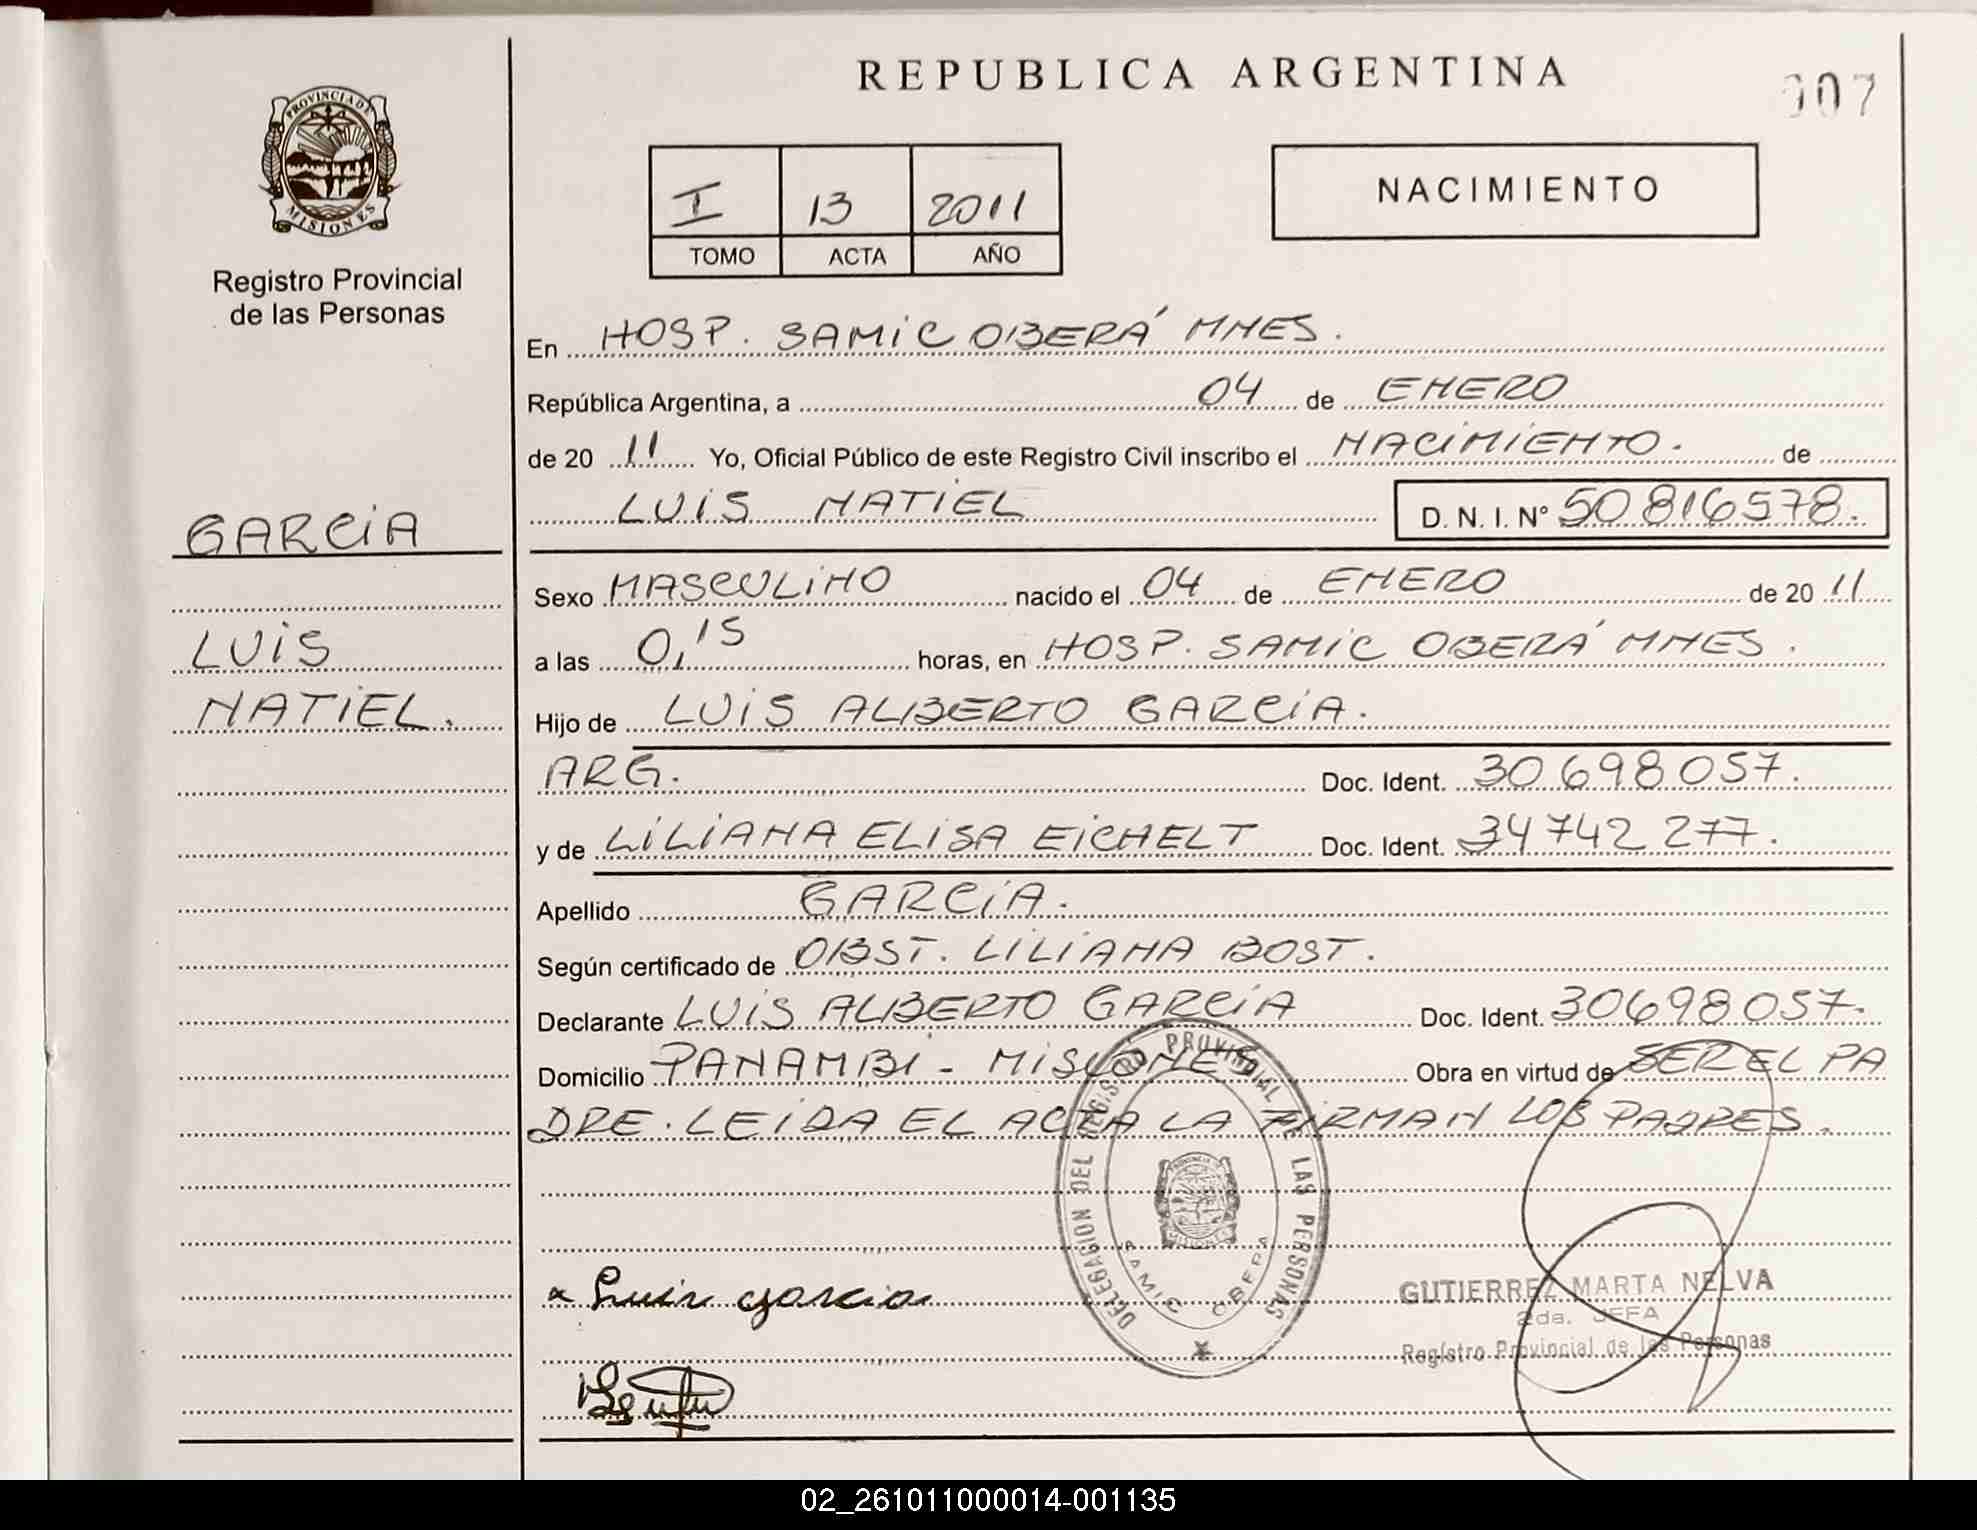 REPUBLICA ARGENTINA
007
PROVINCIA DE
MISIONES
Registro Provincial
de las Personas
I 13 2011
TOMO ACTA AÑO
NACIMIENTO
En HOSP. SAMIC OBERÁ MNES.
República Argentina, a 04 de ENERO
de 20 11 Yo, Oficial Público de este Registro Civil inscribo el NACIMIENTO. de
LUIS NATIEL D. N. I. N° 50 816578.
GARCIA
LUIS
NATIEL.
Sexo MASCULINO nacido el 04 de ENERO de 20 11
a las 0,15 horas, en HOSP. SAMIC OBERÁ MNES.
Hijo de LUIS ALBERTO GARCIA.
ARG. Doc. Ident. 30 698 057.
y de LILIANA ELISA EICHELT Doc. Ident. 34 742 277.
Apellido GARCIA.
Según certificado de OBST. LILIANA BOST.
Declarante LUIS ALBERTO GARCIA Doc. Ident. 30698 057.
Domicilio PANAMBI - MISIONES Obra en virtud de SER EL PA
DRE. LEIDA EL ACTA LA FIRMAN LOS PADRES.
DELEGACION DEL REGISTRO PROVINCIAL DE LAS PERSONAS
SAMIC OBERA
Luis Garcia
GUTIERREZ MARTA NELVA
2da. JEFA
Registro Provincial de las Personas
02_261011000014-001135